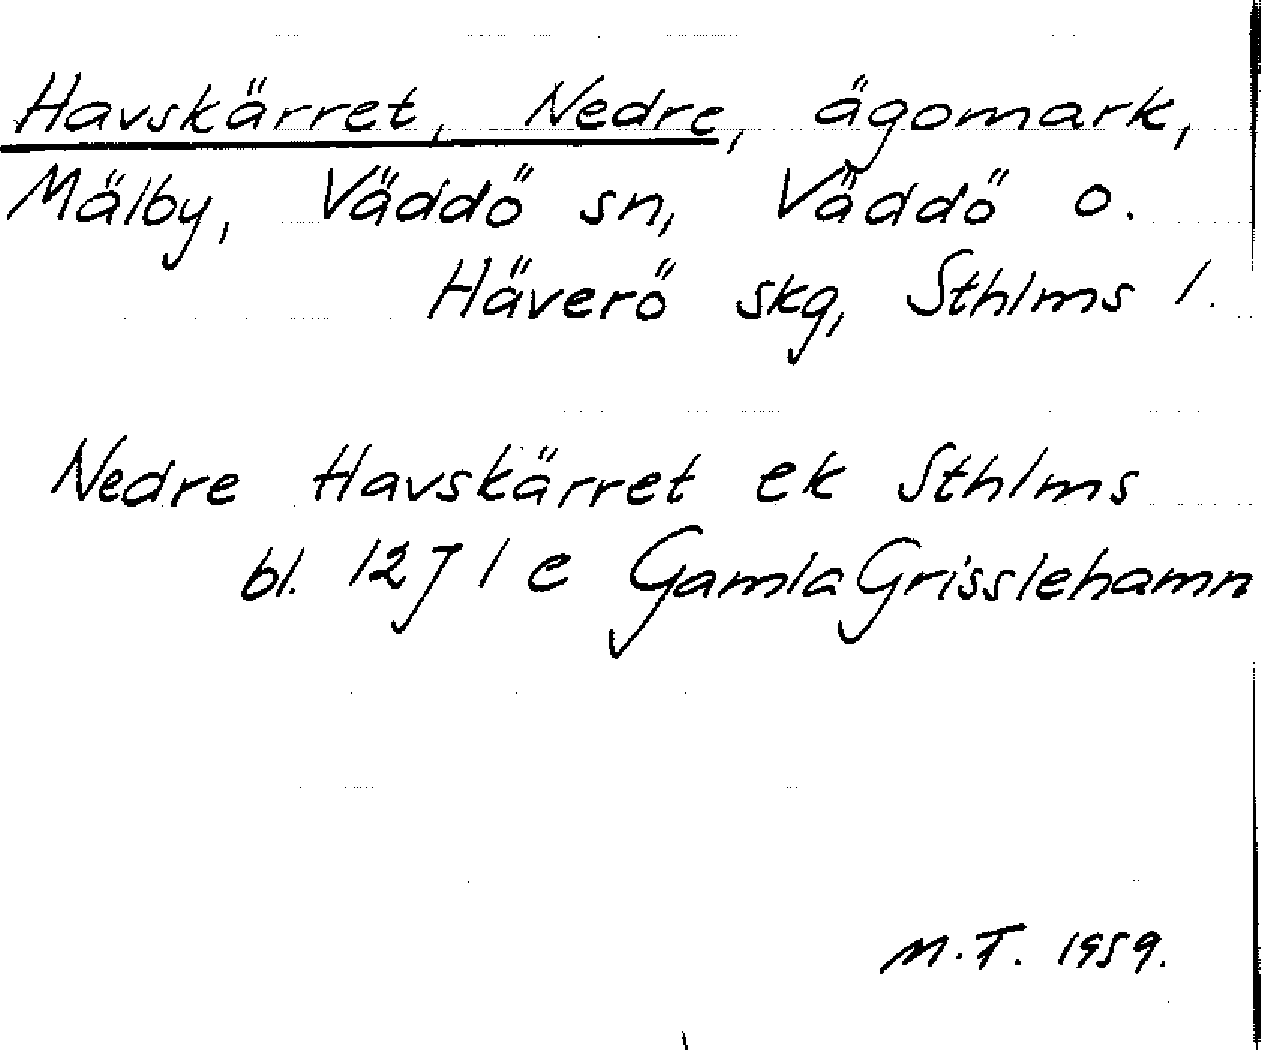 Havskärret, Nedre, ägomark,
Mälby, Väddö sn, Väddö o.
Häverö skg, Sthlms l.
Nedre Havskärret ek Sthlms
bl. 12J 1 e Gamla Grisslehamn
M.T. 1959.